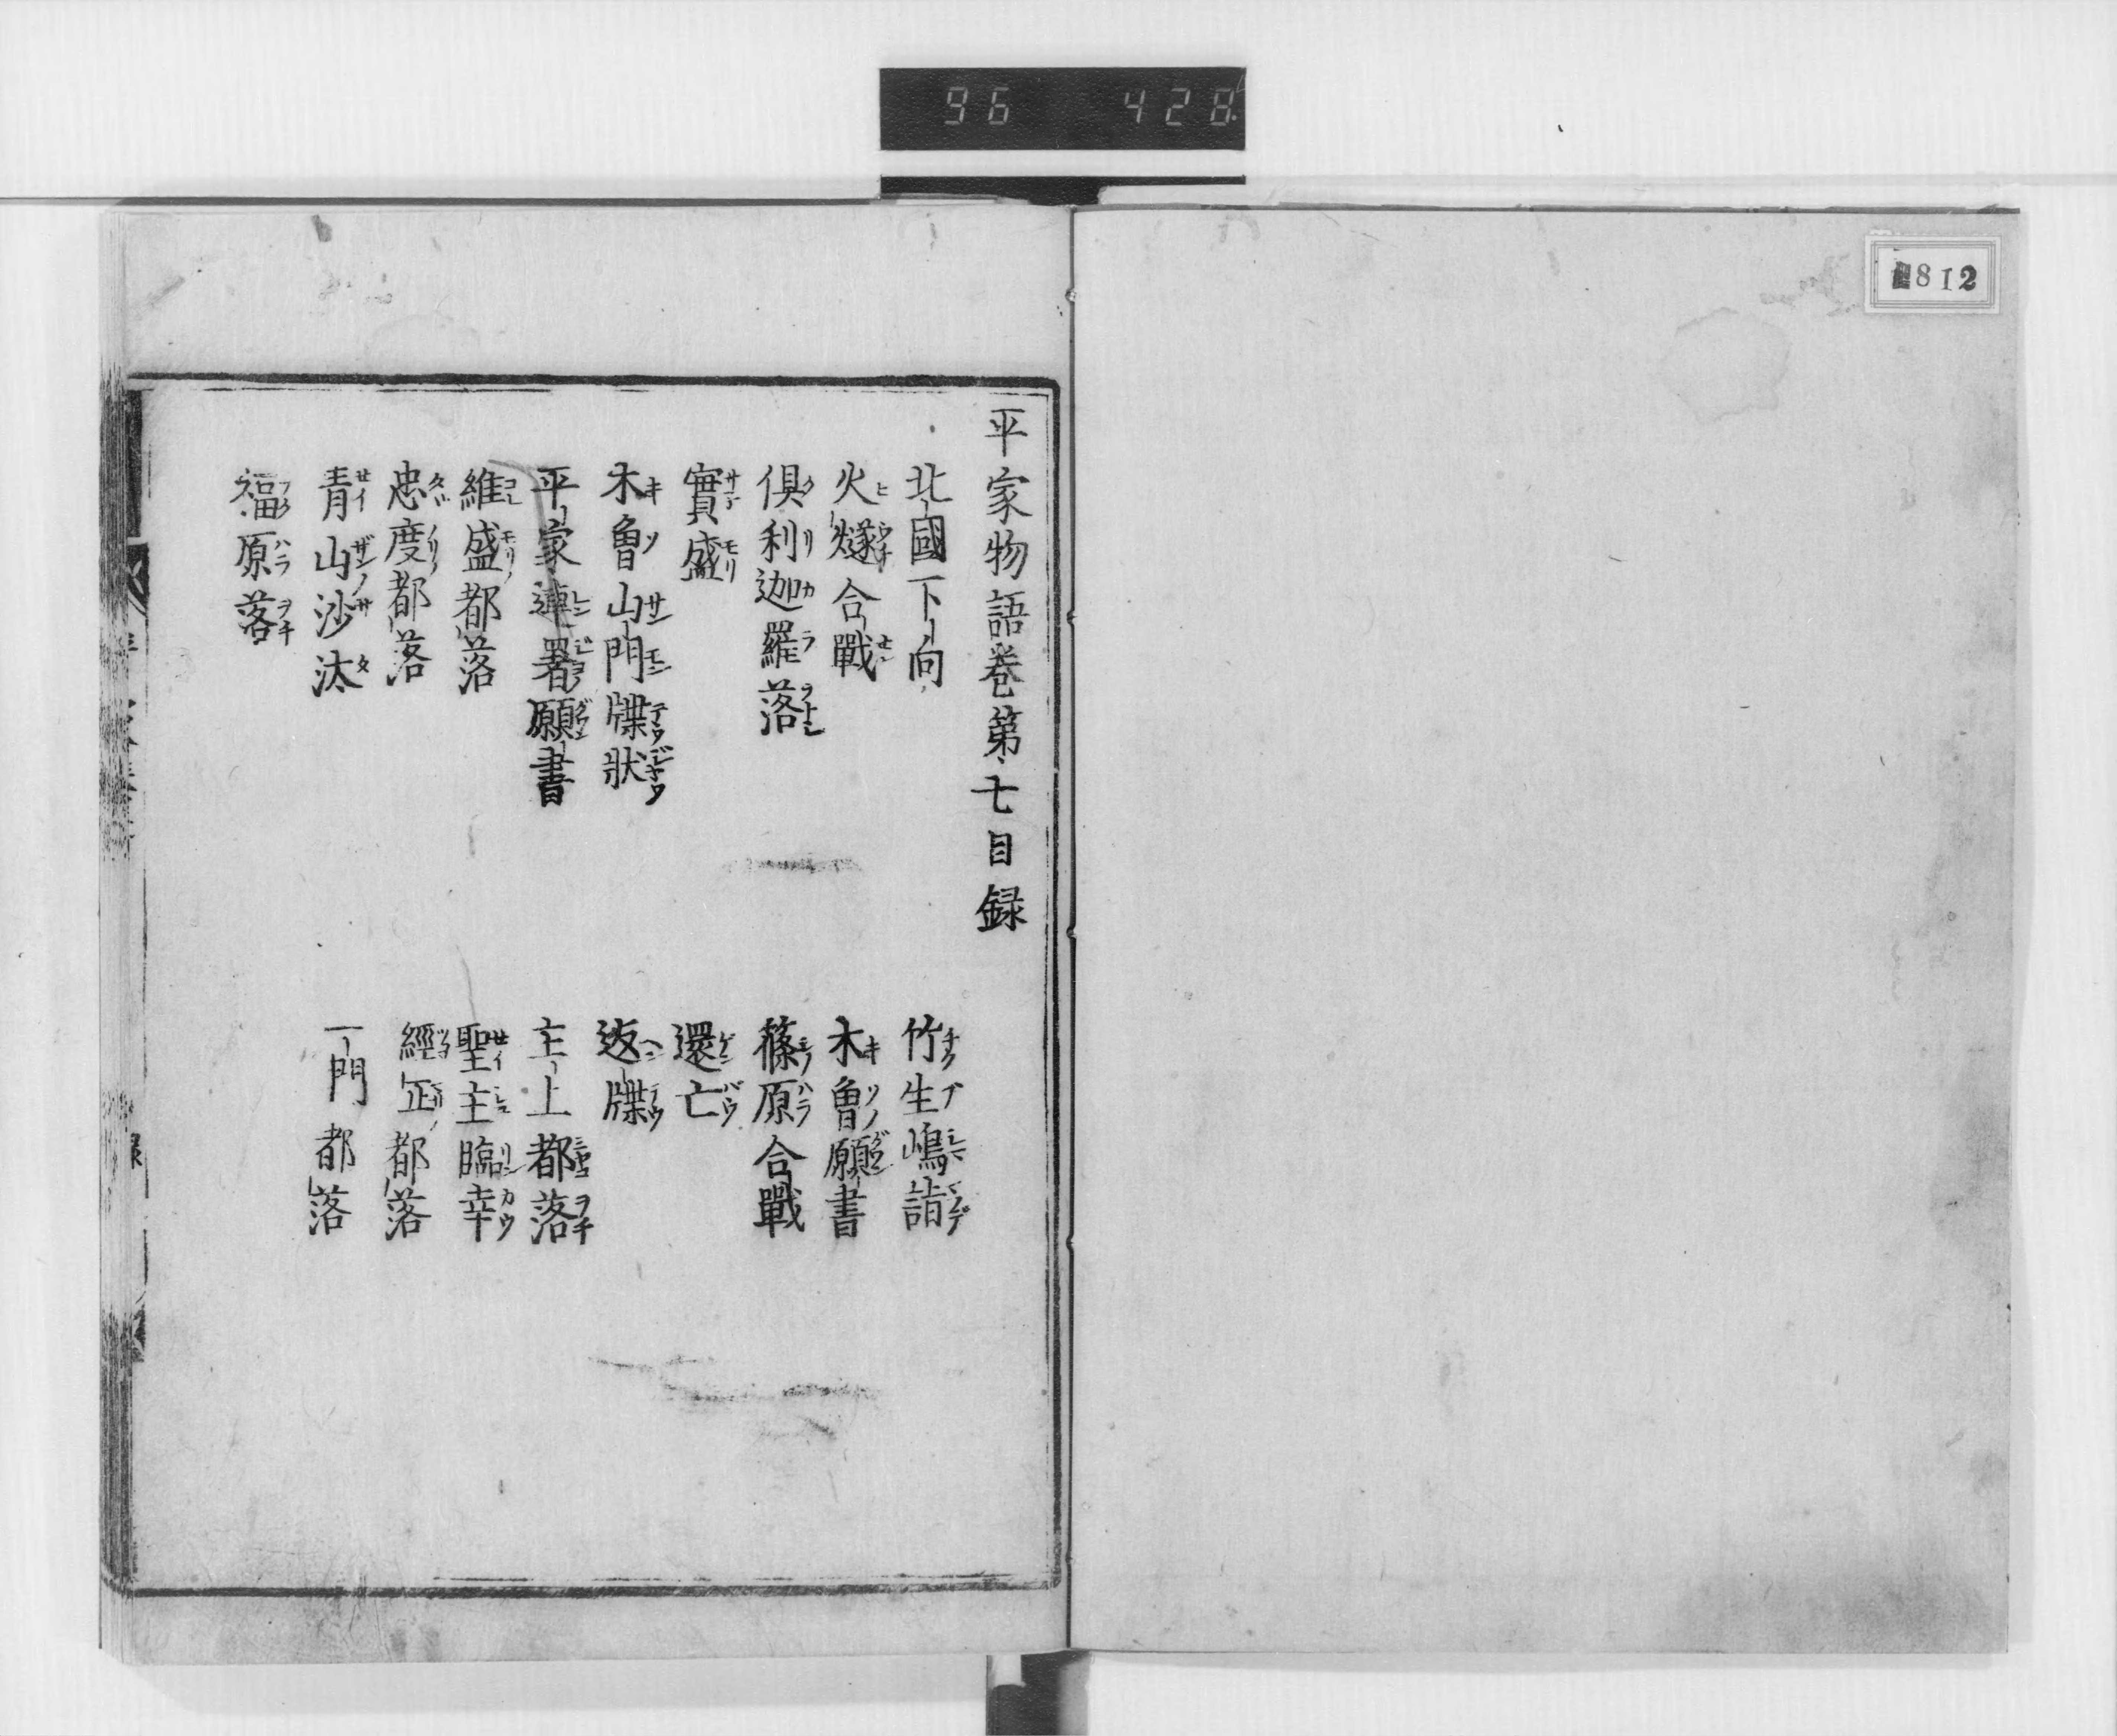 96 428
812
平家物語巻第七目録
北國下向
竹生嶋詣
火燧合戰
木曽願書
倶利迦羅落
篠原合戰
實盛
還亡
木曽山門牒狀
返牒
平家連署願書
主上都落
維盛都落
聖主臨幸
忠度都落
經正都落
青山沙汰
一門都落
福原落